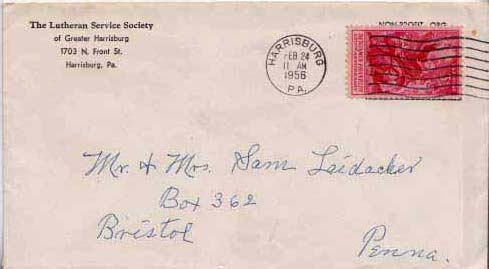 The Lutheran Service Society
of Greater Harrisburg
1703 N. Front St.
Harrisburg, Pa.
NON-PROFIT ORG.
HARRISBURG
FEB 24
11 AM
1956
PA.
Mr. & Mrs. Sam Laidacker
Box 362
Bristol
Penna.